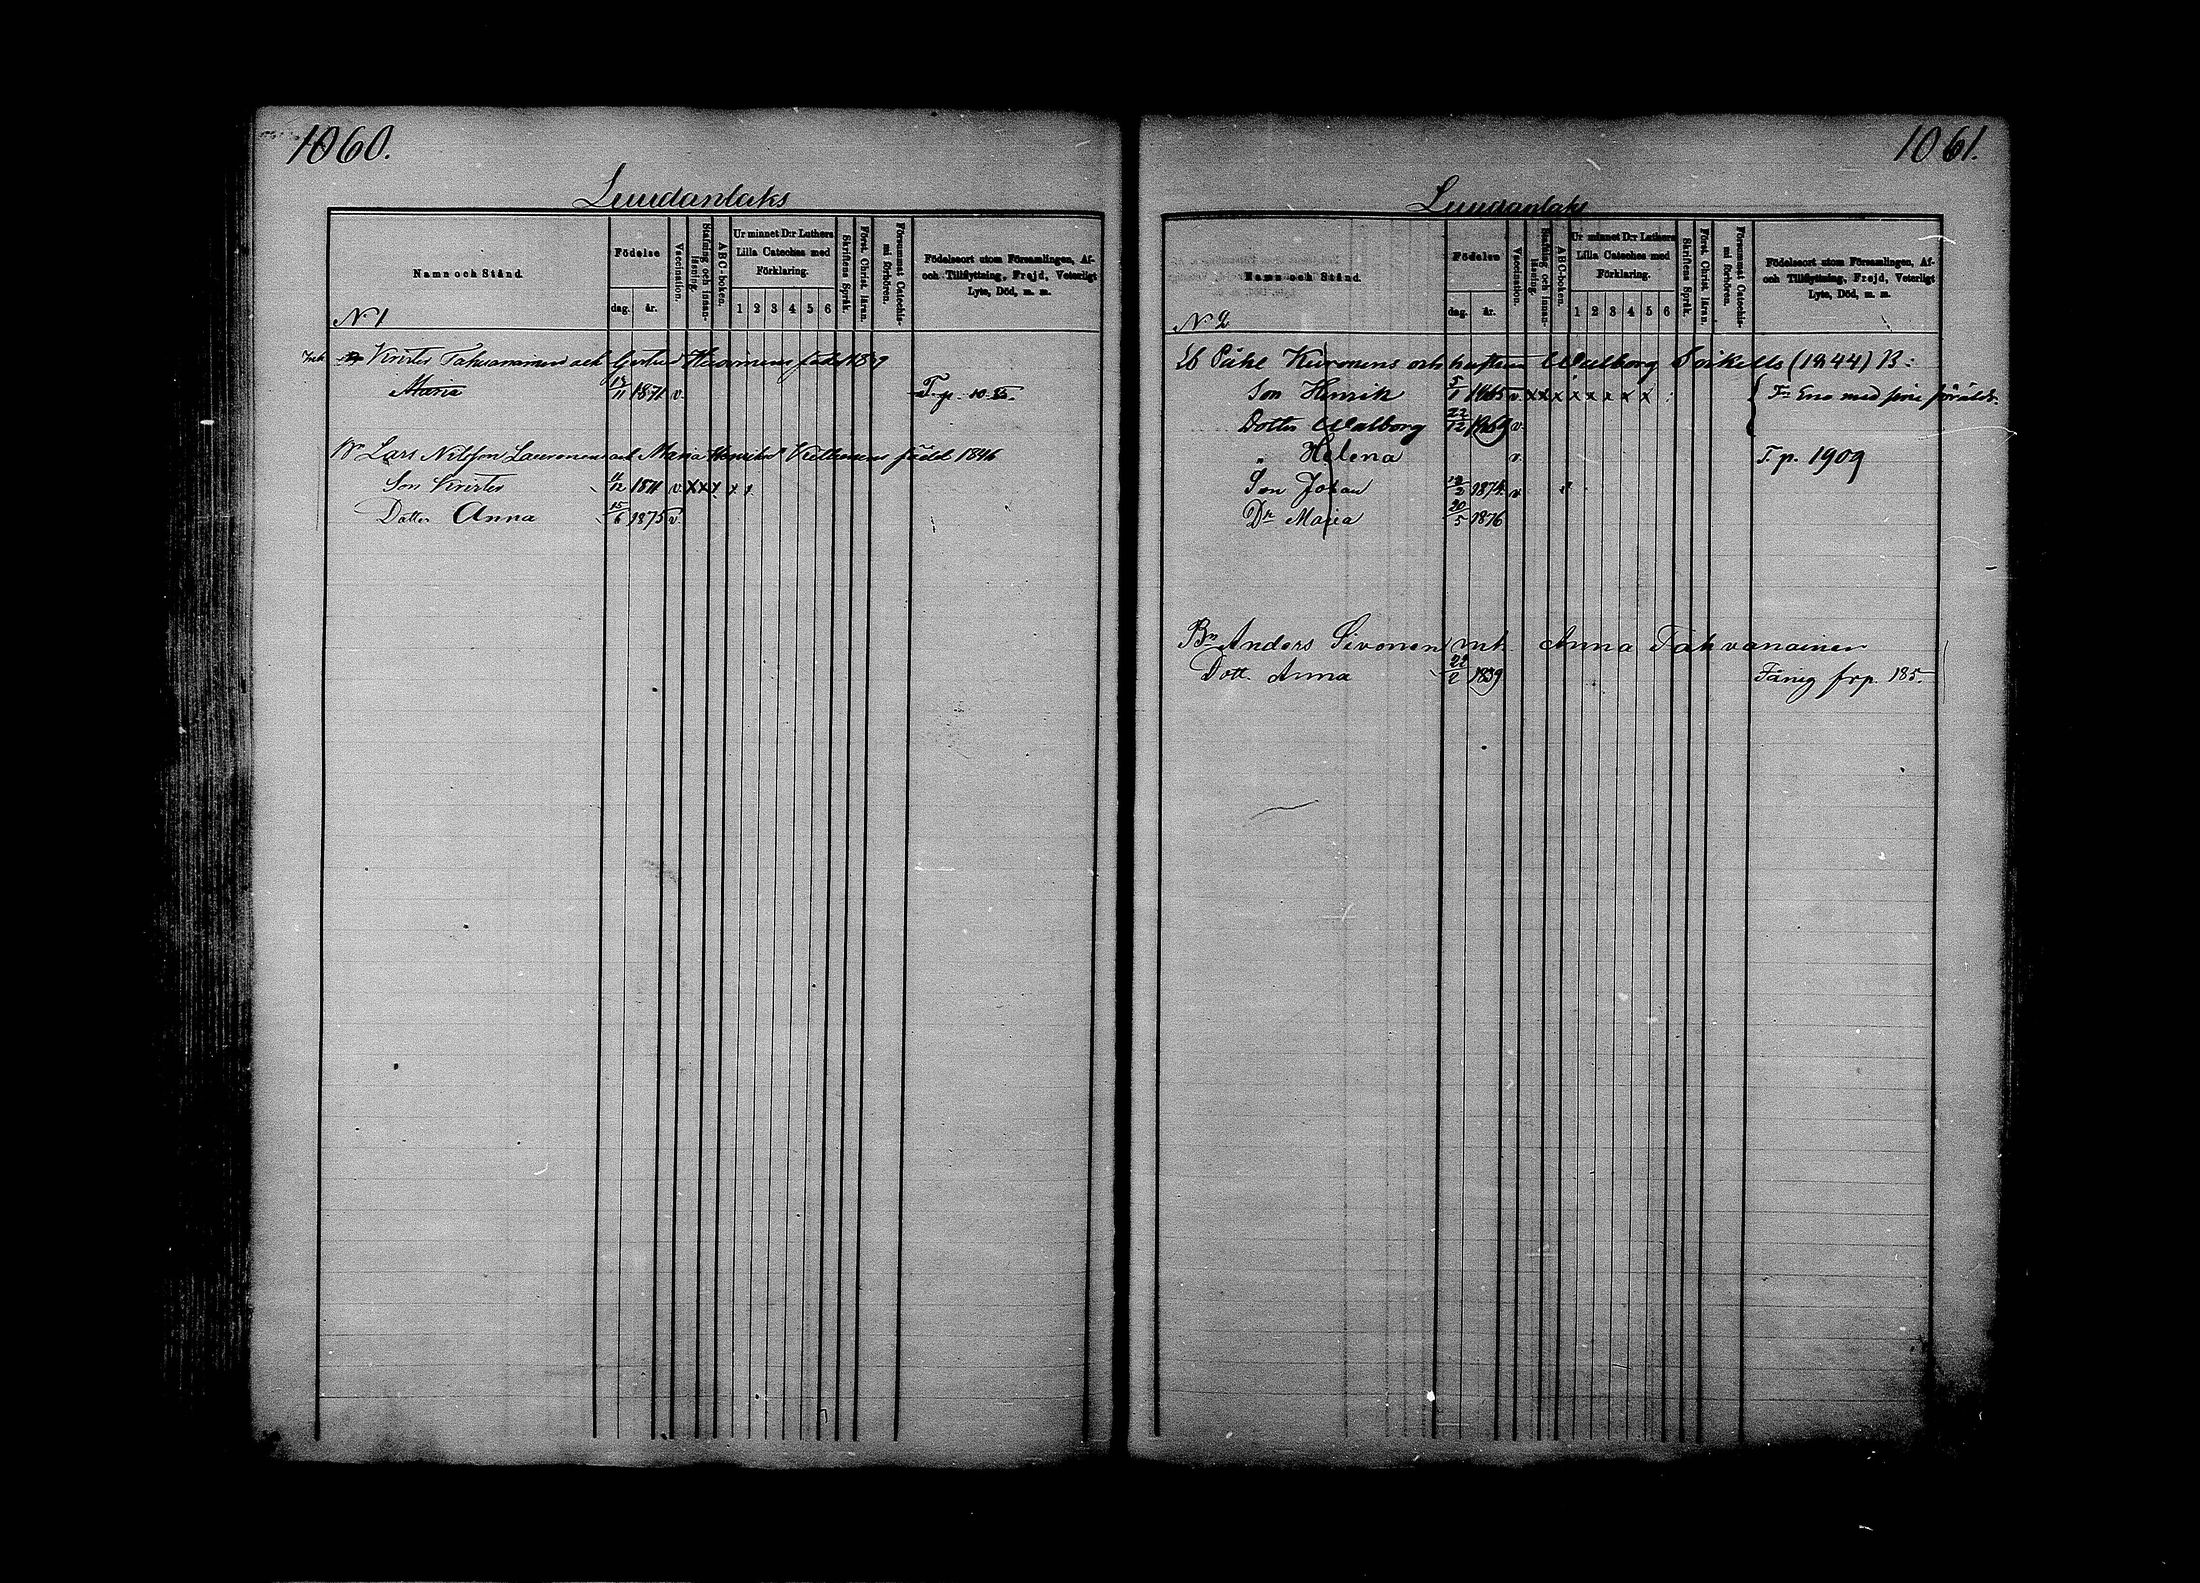 1060.
Luudanlaks
Namn och Stånd.
N 1
Födelse
dag. år.
Vaccination.
Stafning och innan-läsning.
ABC-boken.
Ur minnet D:r Luthers Lilla Cateches med Förklaring.
1 2 3 4 5 6
Skriftens Språk.
Först. Christ. läran.
Försummat Catechis-mi förhören.
Födelseort utom Församlingen, Af- och Tillflyttning, Frejd, Veterligt Lyte, Död, m. m.
Krister Tahvanainen och
Maria 17/11 1871 v. T. p. 10
Lars Nilsson Lauronen och Maria Henriksd Kettunens född 1846
Son Krister 1871 v. x x x x x
Dotter Anna 15/6 1875 v.
1061.
Luudanlaks
Namn och Stånd.
N 2
Födelse
dag. år.
Vaccination.
Stafning och innan-läsning.
ABC-boken.
Ur minnet D:r Luthers Lilla Cateches med Förklaring.
1 2 3 4 5 6
Skriftens Språk.
Först. Christ. läran.
Försummat Catechis-mi förhören.
Födelseort utom Församlingen, Af- och Tillflyttning, Frejd, Veterligt Lyte, Död, m. m.
Påhl Kuronens och hustrun Walborg Toikells (1844) B:
Son Henrik 5/1 v. x x x x x x x x Fn Eno med sine föräldr.
Dotter Walborg 22/12 1869 v.
" Helena v. T. p. 1909
Son Johan 1874 v.
Dr Maria 20/5 1876
Bn Anders Sivonen m.h. Anna Tahvanainen
Dott. Anna 22/2 1839 Fånig frp. 185.